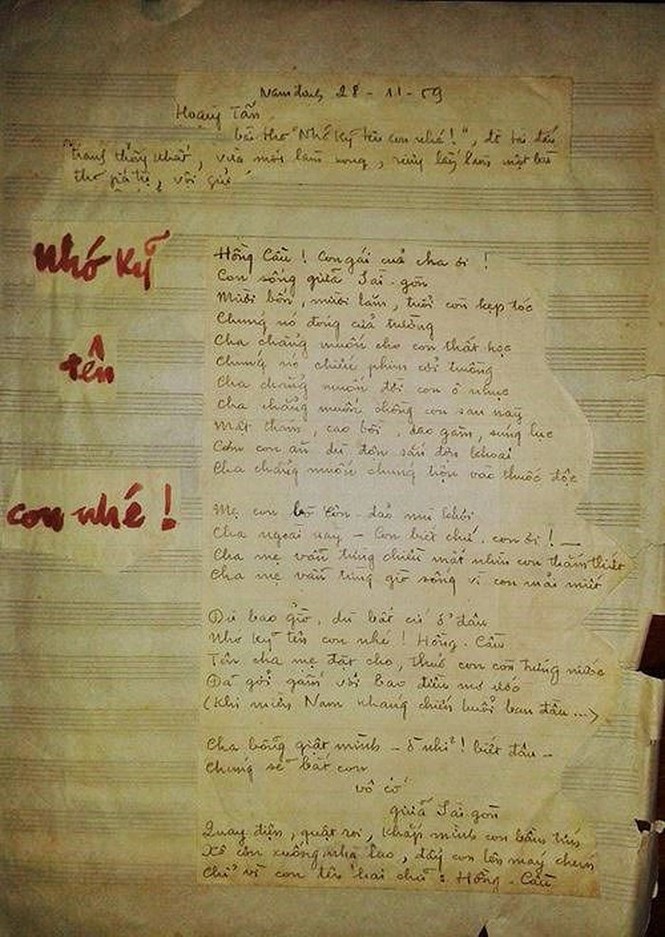 Nam định 28-11-59
Hoàng Tấn
bài thơ "Nhớ ký tên con nhé!", đề tài đấu
tranh thống nhất, vừa mới làm xong, một bài
thơ giá trị, vội gửi
Nhớ ký
tên
con nhé!
Hồng Cầu! Con gái của cha ơi!
Con sống giữa Sài-gòn
Mười bốn, mười lăm, tuổi còn kẹp tóc
Chúng nó đóng cửa trường
Cha chẳng muốn cho con thất học
Chúng nó chiếu phim cởi truồng
Cha chẳng muốn đời con ô nhục
Cha chẳng muốn chồng con sau này
Mật thám, cao bồi, dao găm, súng lục
Cơm con ăn dù độn sắn độn khoai
Cha chẳng muốn chúng trộn vào thuốc độc
Mẹ con ở Côn-đảo mù khơi
Cha ngoài này - Con biết chứ, con ơi! -
Cha mẹ vẫn từng chiều mắt nhìn con thắm thiết
Cha mẹ vẫn từng giờ sống vì con mải miết
Dù bao giờ, dù bất cứ ở đâu
Nhớ ký tên con nhé! Hồng-Cầu
Tên cha mẹ đặt cho, thuở con còn trứng nước
Đã gởi gắm với bao điều mơ ước
(Khi miền Nam kháng chiến buổi ban đầu...)
Cha bỗng giật mình - ồ nhỉ! biết đâu -
Chúng sẽ bắt con
vô cớ
giữa Sài-gòn
Quay điện, quật roi, khắp mình con bầm tím
Xô con xuống nhà lao, đẩy con lên máy chém
Chỉ vì con tên hai chữ: Hồng-Cầu